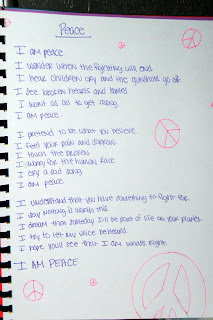 Peace
I am peace
I wonder when the fighting will end
I hear children cry and the gunshots go off
I see broken hearts and homes
I want us all to get along
I am peace.
I pretend to be what you believe
I feel your pain and sorrow
I touch the broken
I worry for the human race
I cry a sad song
I am peace
I understand that you have something to fight for
I say nothing is worth this
I dream that someday I'll be part of life on your planet
I try to let my voice be heard
I hope you'll see that I am what's right.
I AM PEACE